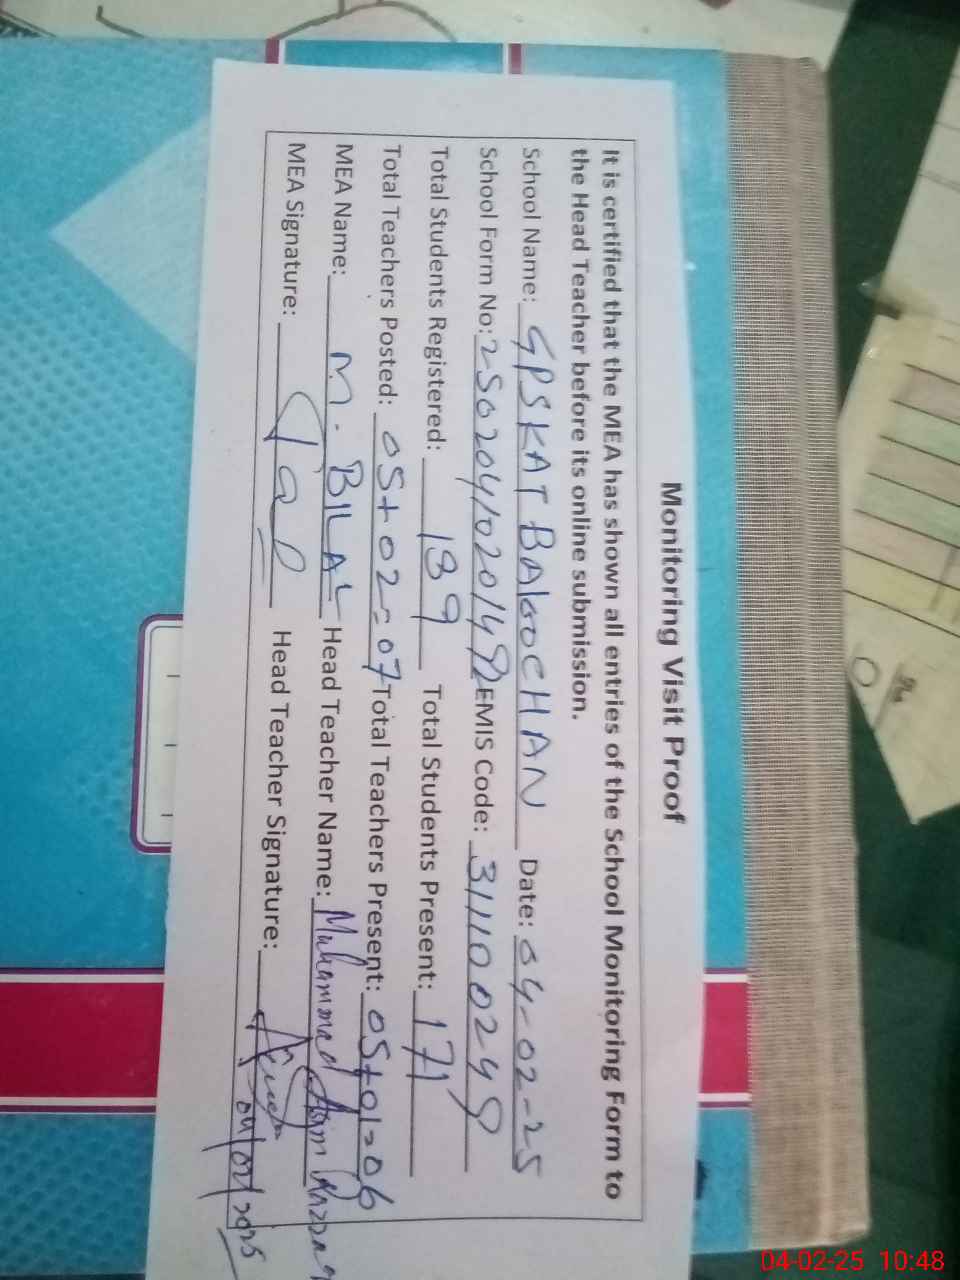 Monitoring Visit Proof
It is certified that the MEA has shown all entries of the School Monitoring Form to
the Head Teacher before its online submission.
School Name: GPS KAT BALOOCHAN Date: 04-02-25
School Form No: 2502041020149 EMIS Code: 31110024
Total Students Registered: 189 Total Students Present: 171
Total Teachers Posted: 05+02=07 Total Teachers Present: 05+01=06
MEA Name: M. BILAL Head Teacher Name: Muhammad Asim Razzaq
MEA Signature: Head Teacher Signature:
04-02-25 10:48